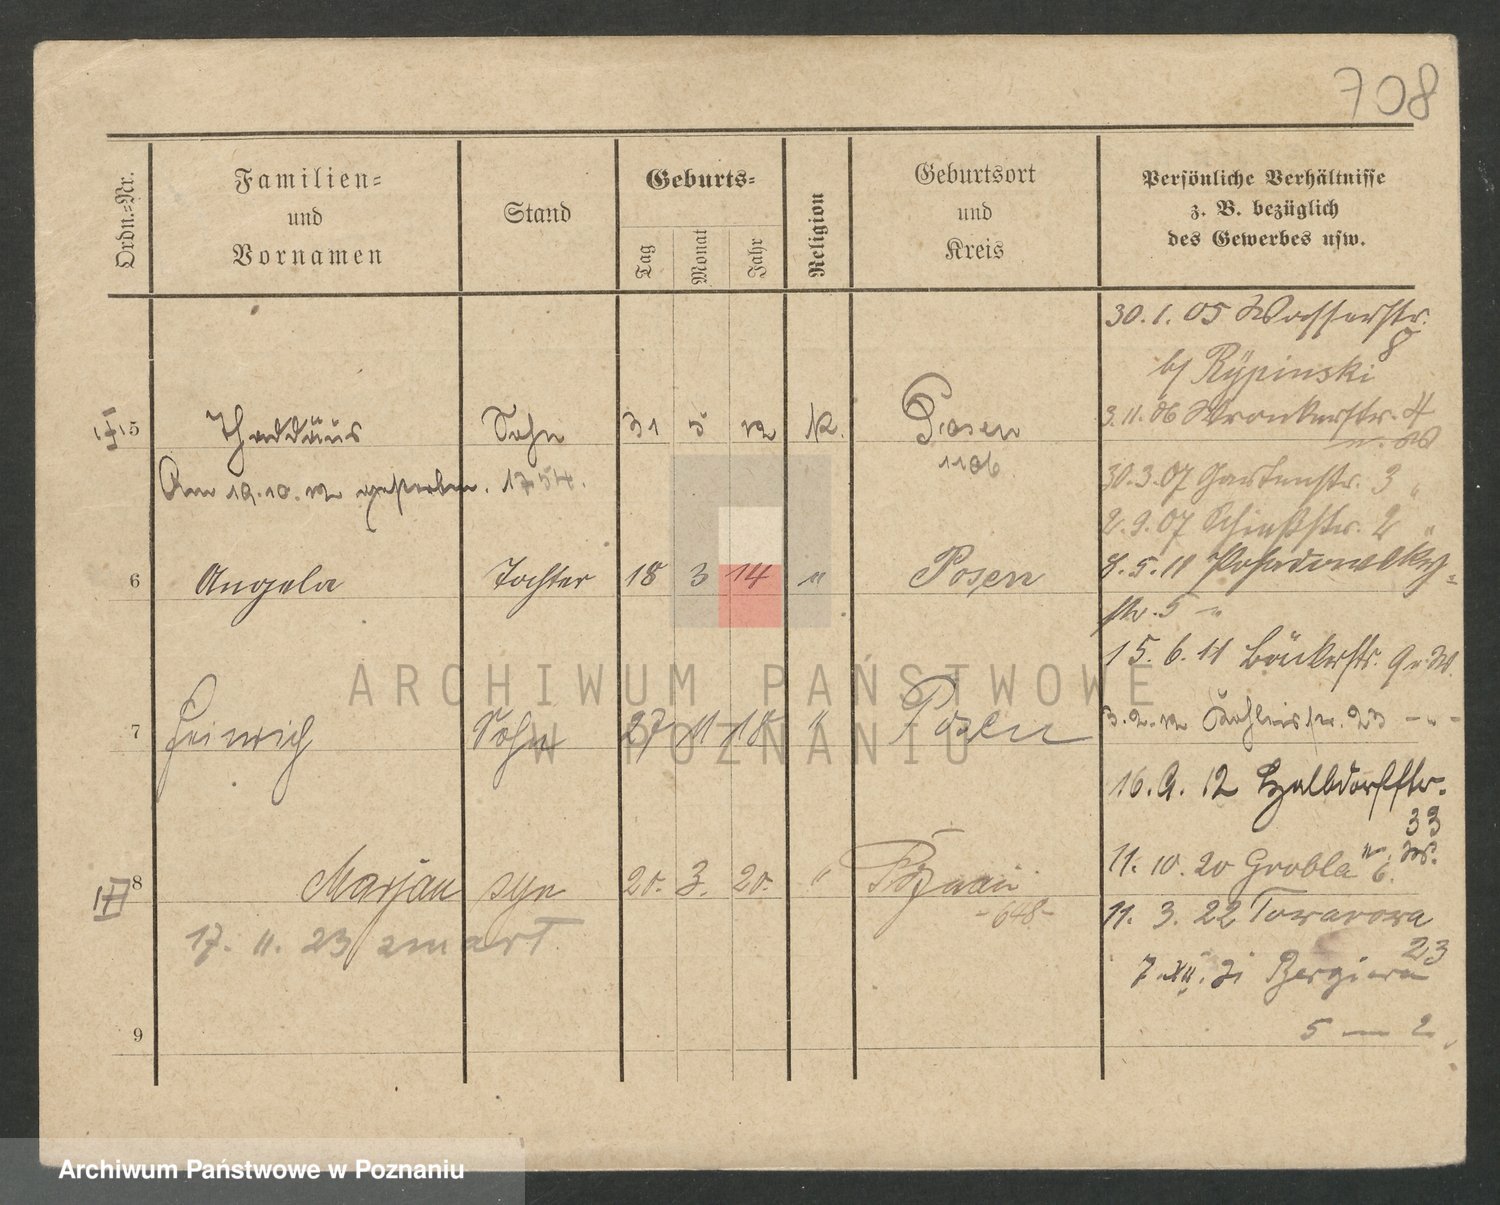 708
Ordn.-Nr.
Familien-
und
Vornamen
Stand
Geburts-
Tag
Monat
Jahr
Religion
Geburtsort
und
Kreis
Persönliche Verhältnisse
z. B. bezüglich
des Gewerbes usw.
30. 1. 05 Wasserstr.
8
b/ Rÿpinski
5 Thaddäus Sohn 31 5 12 K. Posen
1106
3. 11. 06 Wronkerstr. 4
n. W
Am 19. 10. 12 gestorben. 1754.
30. 3. 07 Gartenstr. 3 "
2. 9. 07 Schießstr. 2 "
6 Angela Tochter 18 3 14 " Posen
8. 5. 11 Posadowsky-
str. 5 - "
15. 6. 11 Bäckerstr. 9 n. W.
7 Heinrich Sohn 27 11 18 " Posen
3. 2. 12 23 - " -
16. 9. 12 Halbdorfstr.
33
n. W.
8 Marjan syn 20. 3. 20. " Poznań
- 648 -
11. 10. 20 Grobla 6.
17. 11. 23 zmarł
11. 3. 22 Towarowa
23
7. XII. 31
5 — 2
9
ARCHIWUM PAŃSTWOWE
W POZNANIU
Archiwum Państwowe w Poznaniu